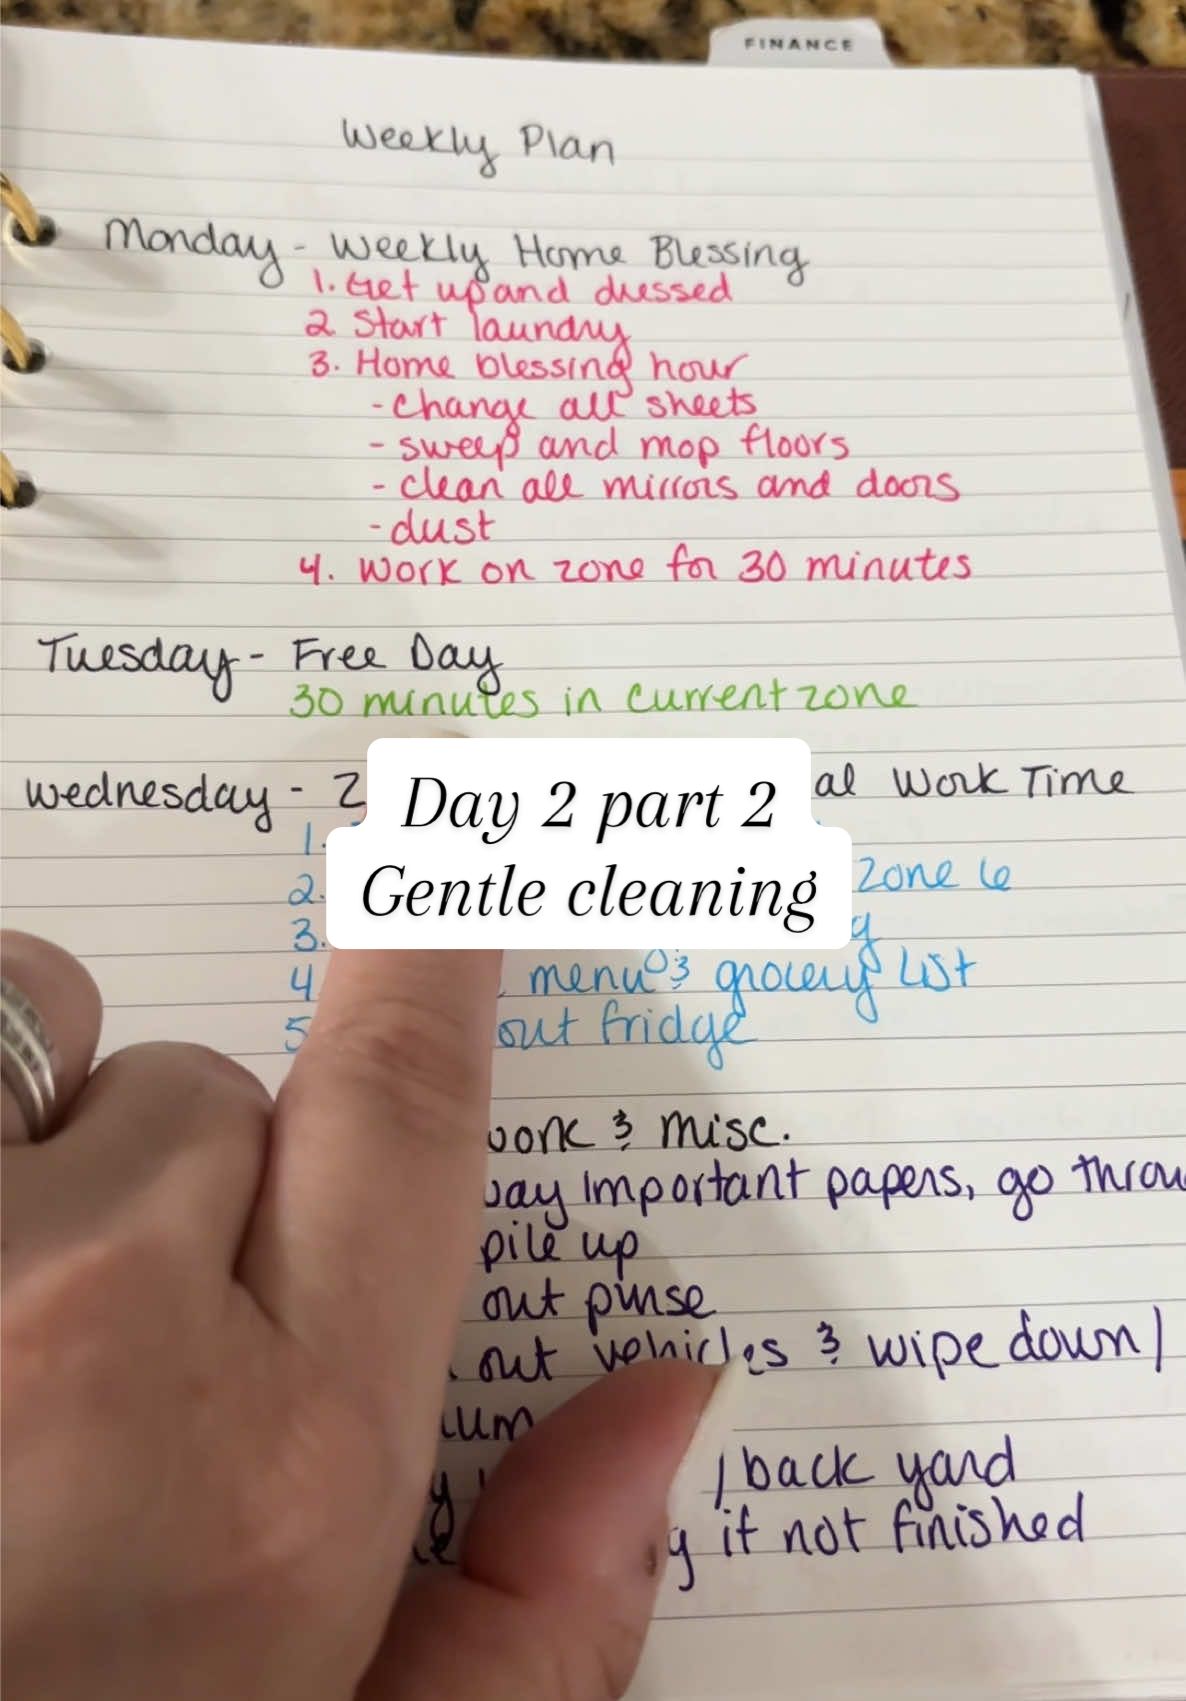 FINANCE
Weekly Plan
Monday - Weekly Home Blessing
1. Get up and dressed
2. Start laundry
3. Home blessing hour
- change all sheets
- sweep and mop floors
- clean all mirrors and doors
- dust
4. Work on zone for 30 minutes
Tuesday - Free Day
30 minutes in current zone
Wednesday - Z al Work Time
Day 2 part 2
1.
Gentle cleaning
2. Zone 6
3.
4 menu & grocery List
5 out fridge
work & misc.
important papers, go throu
pile up
out purse
out vehicles & wipe down/
/ back yard
if not finished